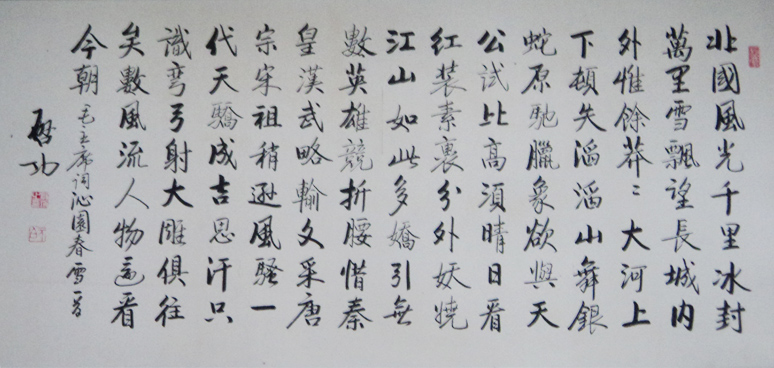 北國風光千里冰封
萬里雪飄望長城内
外惟餘莽〻大河上
下頓失滔滔山舞銀
蛇原馳臘象欲與天
公試比高須晴日看
紅裝素裹分外妖嬈
江山如此多嬌引無
數英雄競折腰惜秦
皇漢武略輸文采唐
宗宋祖稍遜風騷一
代天驕成吉思汗只
識彎弓射大雕俱往
矣數風流人物還看
今朝 毛主席詞沁園春雪一首
啟功